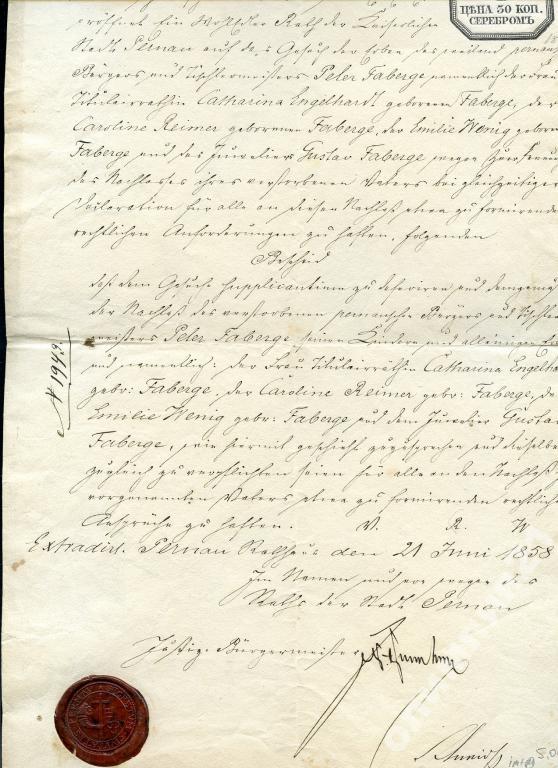 ЦѢНА 30 КОП.
СЕРЕБРОМЪ
eröffnet Ein Wohledler Rath der Kaiserlichen
Stadt Pernau auf das Gesuch der Erben des weiland pernauschen
Bürgers und Tischlermeisters Peter Faberge namentlich der Frau
Titulairräthin Catharina Engelhardt geborenen Faberge, der
Caroline Reimer geborenen Faberge, der Emilie Wenig geborenen
Faberge und des Juweliers Gustav Faberge wegen
des Nachlasses ihres verstorbenen Vaters bei gleichzeitiger
Declaration für alle an diesen Nachlaß etwa zu formirenden
rechtlichen Anforderungen zu haften, folgenden
Bescheid
daß dem Gesuche Supplicantium zu deferiren und demgemäß
der Nachlaß des verstorbenen pernauschen Bürgers und Tischler
meisters Peter Faberge seinen Kindern und alleinigen
und namentlich: der Frau Titulairräthin Catharina Engelha
gebr: Faberge, der Caroline Reimer gebr: Faberge, de
Emilie Wenig gebr: Faberge und dem Juwelier Gusta
Faberge, wie hiermit geschieht zugesprochen und dieselben
zugleich zu verpflichten seien für alle an den Nachlaß
vorgenannten Vaters etwa zu formirenden rechtlichen
Ansprüche zu haften. V. R. W
№ 1943.
Extradirt. Pernau Rathhaus den 21 Juni 1858
Im Namen und von wegen des
Raths der Stadt Pernau
Justiz-Bürgermeister